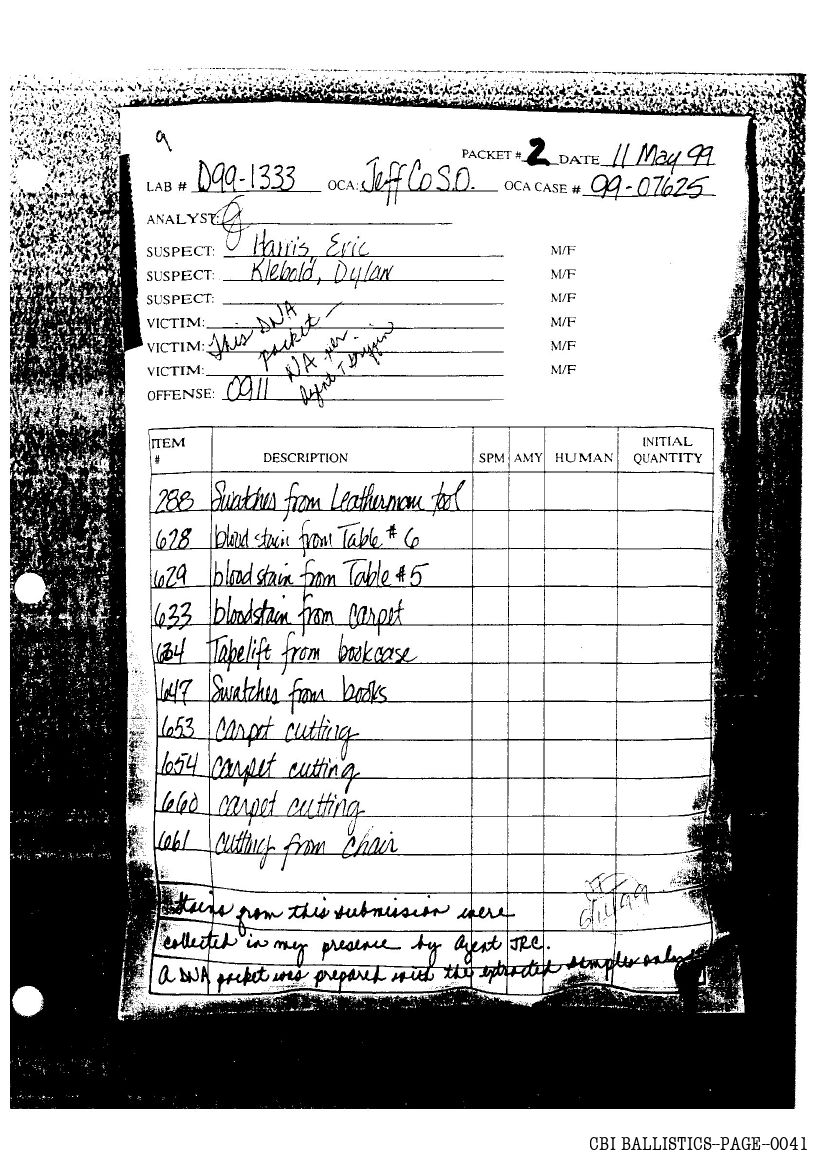 9
PACKET # 2 DATE 11 May 99
LAB # D99-1333 OCA: Jeff Co S.O. OCA CASE # 99-07625
ANALYST:
SUSPECT: Harris, Eric M/F
SUSPECT: Klebold, Dylan M/F
SUSPECT: M/F
VICTIM: M/F
VICTIM: M/F
VICTIM: M/F
This DNA
packet —
NA per
Agent T Griffin
OFFENSE: 0911
ITEM # DESCRIPTION SPM AMY HUMAN INITIAL QUANTITY
288 Swatches from Leatherman tool
628 blood stain from Table # 6
629 blood stain from Table #5
633 bloodstain from carpet
634 Tapelift from bookcase
647 Swatches from books
653 carpet cutting
654 carpet cutting
660 carpet cutting
661 cutting from chair
6/11/99
Stains from this submission were
collected in my presence by Agent JRC.
A DNA packet was prepared with the extracted samples only
CBI BALLISTICS-PAGE-0041